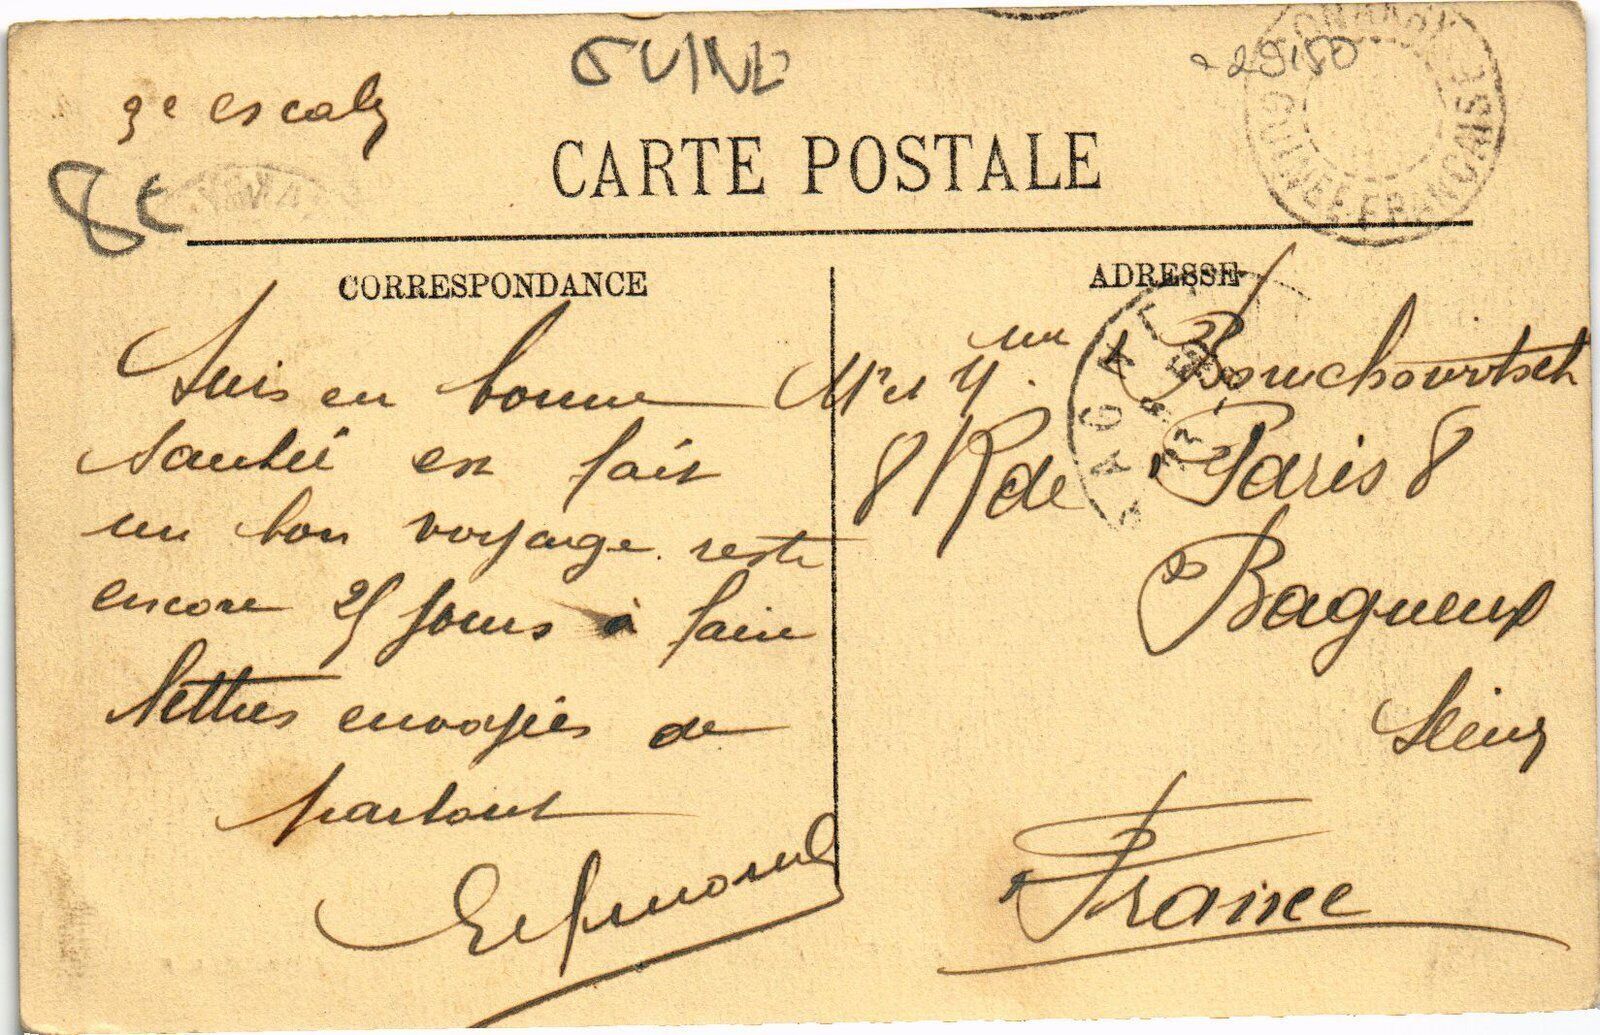 GUINE
29150
CONAKRY
GUINÉE FRANÇAISE
3e escale
8€
CARTE POSTALE
CORRESPONDANCE
ADRESSE
Suis en bonne
santée en fait
un bon voyage. reste
encore 25 jours à faire
lettres envoyées de
partout
Mr et Mme
8 R de Paris 8
Bagneux
Seine
France